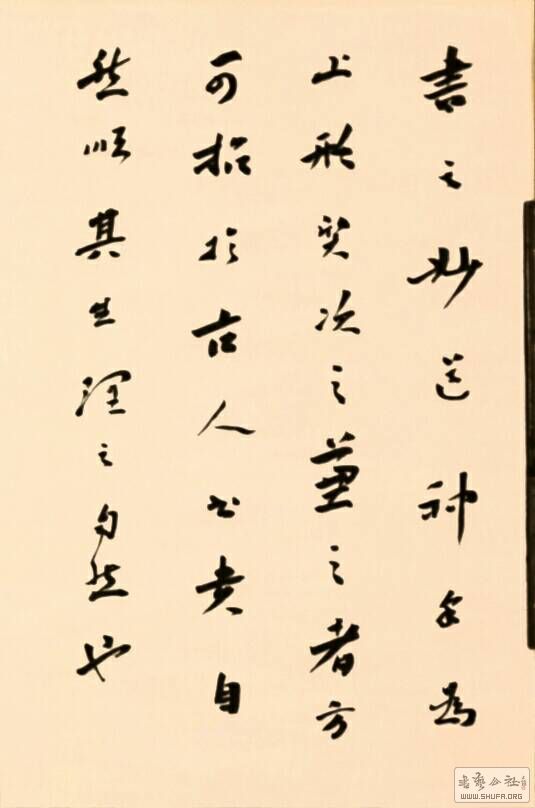 書之妙道神采為
上形質次之兼之者方
可紹於古人书貴自
然順其生理之自然也
书艺公社
WWW.SHUFA.ORG